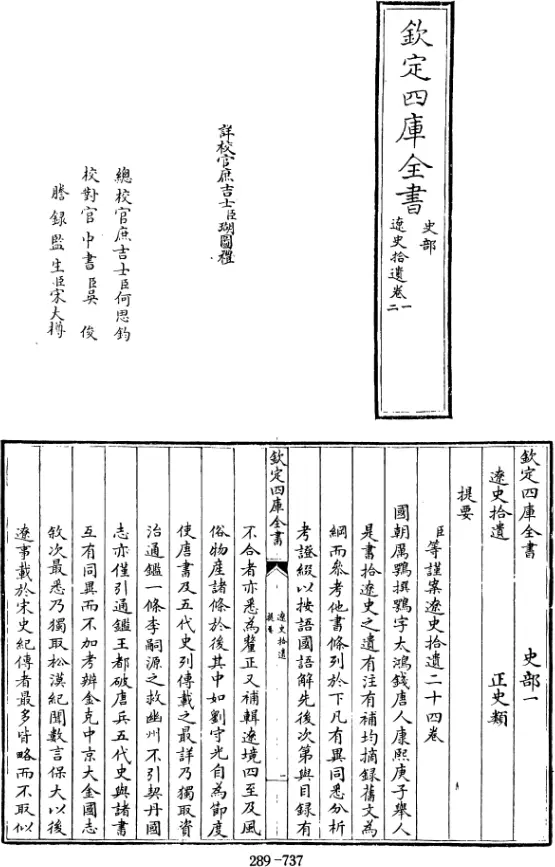 欽定四庫全書
史部
遼史拾遺卷一
二
詳校官庶吉士臣瑚圖禮
總校官庶吉士臣何思鈞
校對官中書臣吳俊
謄錄監生臣宋大樽
欽定四庫全書
史部一
遼史拾遺
正史類
提要
臣等謹案遼史拾遺二十四卷
國朝厲鶚撰鶚字太鴻錢唐人康熙庚子舉人
是書拾遼史之遺有注有補均摘錄舊文為
綱而參考他書條列於下凡有異同悉分析
考證綴以按語國語解先後次第與目錄有
欽定四庫全書
遼史拾遺
提要
一
不合者亦悉為釐正又補輯遼境四至及風
俗物產諸條於後其中如劉守光自為節度
使唐書及五代史列傳載之最詳乃獨取資
治通鑑一條李嗣源之救幽州不引契丹國
志亦僅引通鑑王都破唐兵五代史與諸書
互有同異而不加考辨金克中京大金國志
敘次最悉乃獨取松漠紀聞數言保大以後
遼事載於宋史紀傳者最多皆略而不取似
289-737